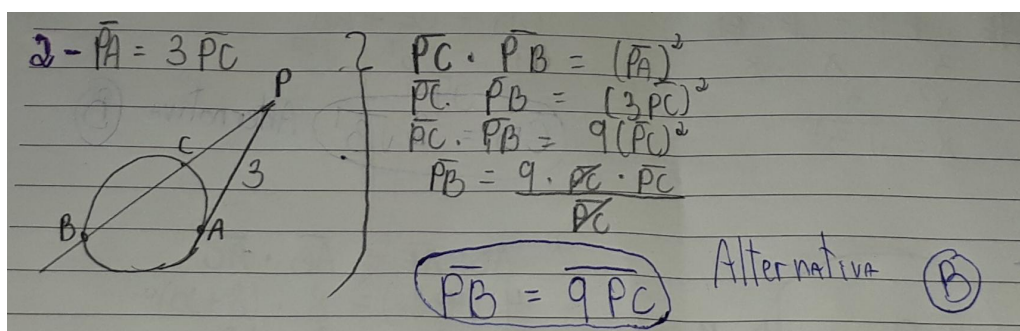 2 - P̅A̅ = 3 P̅C̅
P
C
3
B
A
P̅C̅ . P̅B̅ = (P̅A̅)²
P̅C̅ . P̅B̅ = (3P̅C̅)²
P̅C̅ . P̅B̅ = 9(P̅C̅)²
P̅B̅ = 9 . P̅C̅ . P̅C̅
P̅C̅
P̅B̅ = 9P̅C̅
Alternativa B